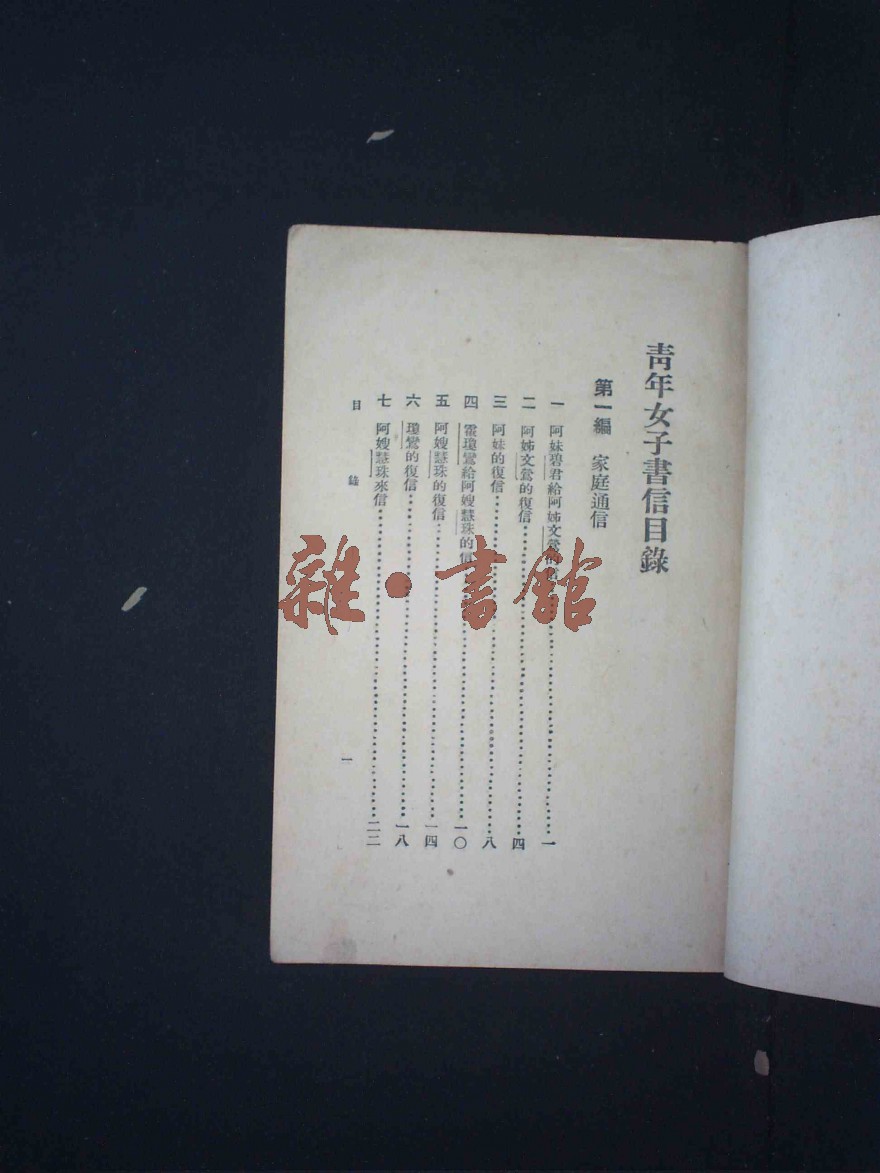 青年女子書信目錄
第一編 家庭通信
一 阿妹碧君給阿姊文鶯的信……一
二 阿姊文鶯的復信……四
三 阿妹的復信……八
四 瓊鶯給阿嫂慧珠的信……一〇
五 阿嫂慧珠的復信……一四
六 瓊鶯的復信……一八
七 阿嫂慧珠來信……二二
目錄 一
雜·書館